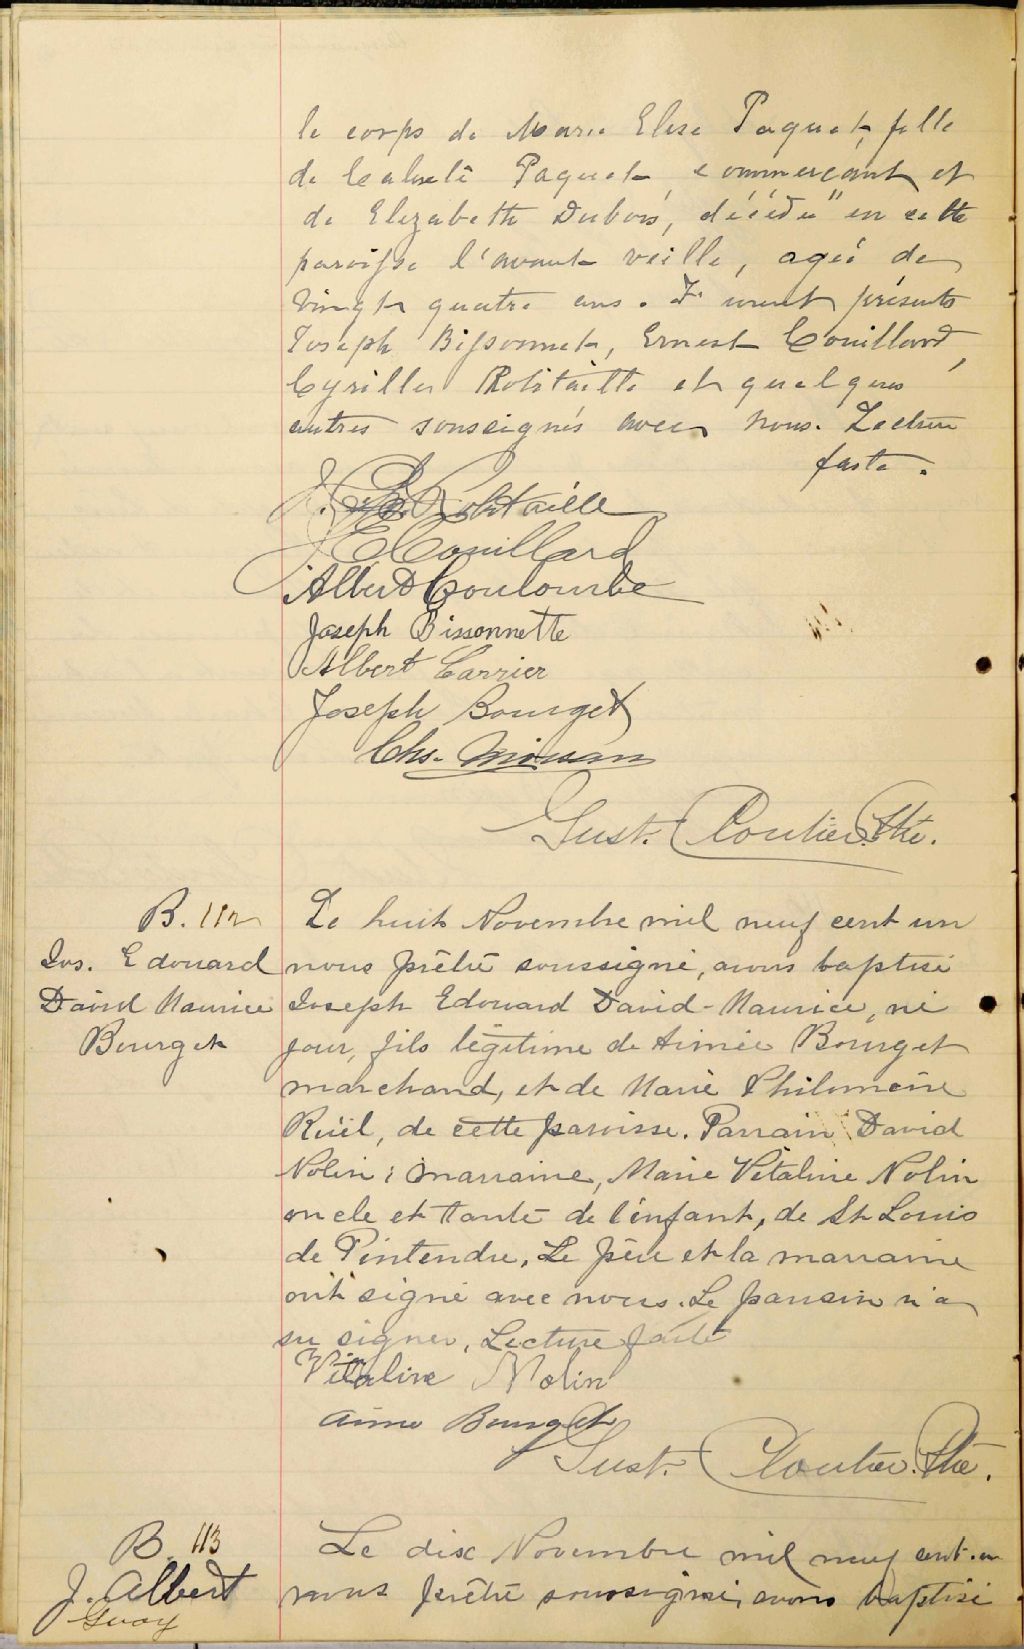 le corps de Marie Elise Paquet, fille
de Paquet, commerçant et
de Elizabeth Dubois, décédée en cette
paroisse l'avant veille, agée de
vingt quatre ans. Furent présents
Joseph Bissonnet, Ernest Couillard,
Cyrille Robitaille et quelques
autres soussignés avec nous. Lecture
faite.
Robitaille
E Couillard
Albert Coulombe
Joseph Bissonnette
Albert Carrier
Joseph Bourget
Chs.
Gust. Cloutier Ptre.
B. 112
Jos. Edouard
David Maurice
Bourget
Le huit Novembre mil neuf cent un
nous prêtre soussigné, avons baptisé
Joseph Edouard David-Maurice, né
jour, fils légitime de Aimée Bourget
marchand, et de Marie Philomène
Ruël, de cette paroisse. Parrain David
Nolin; marraine, Marie Vitaline Nolin
oncle et tante de l'enfant, de St Louis
de Pintendre. Le père et la marraine
ont signé avec nous. Le parrain n'a
su signer. Lecture faite
Vitaline Nolin
Aimé Bourget
Gust. Cloutier. Ptre.
B. 113
J. Albert
Guay
Le dix Novembre mil neuf cent un
nous prêtre soussigné, avons baptisé